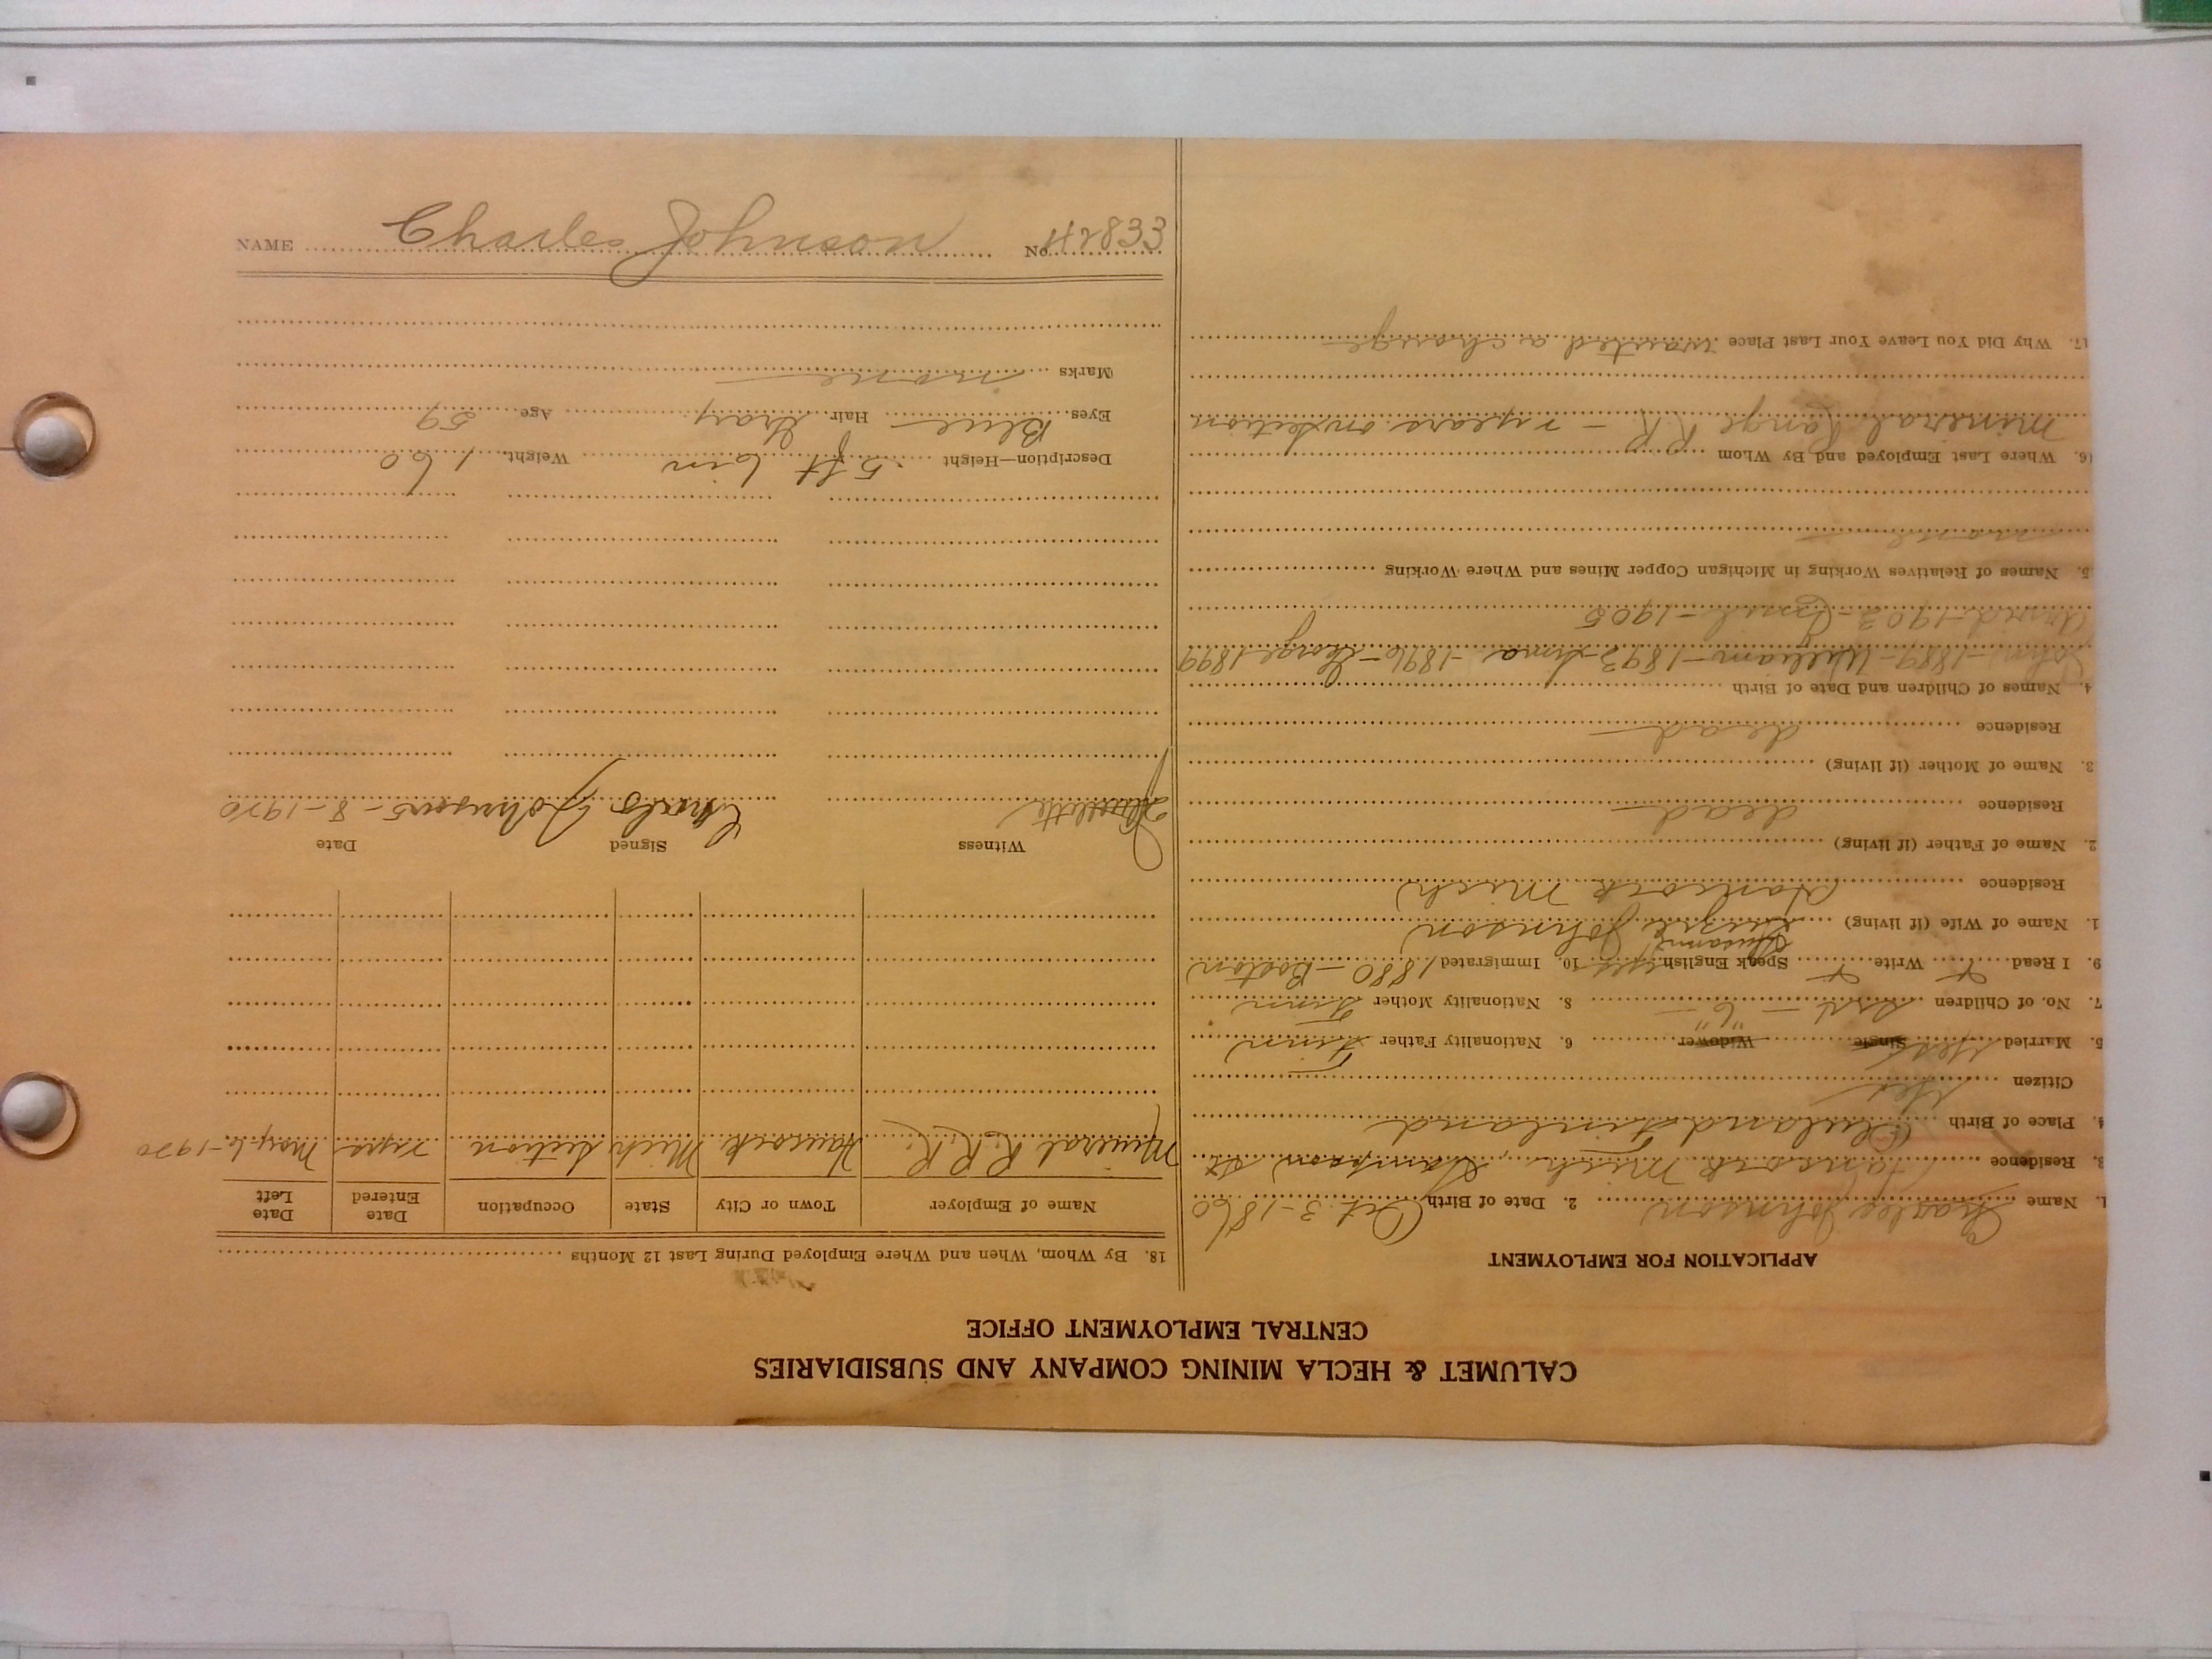 CALUMET & HECLA MINING COMPANY AND SUBSIDIARIES
CENTRAL EMPLOYMENT OFFICE
APPLICATION FOR EMPLOYMENT
1. Name Charles Johnson 2. Date of Birth Oct. 3-1860
3. Residence Hancock Mich, Hampson St
4. Place of Birth Finland
Citizen Yes
5. Married Yes Single Widower 6. Nationality Father Finn
7. No. of Children - 6 - 8. Nationality Mother Finn
9. I Read Write Speak English yes 10. Immigrated 1880 - Boston
1. Name of Wife (if living) Johnson
Residence Hancock Mich
2. Name of Father (if living)
Residence dead
3. Name of Mother (if living)
Residence dead
4. Names of Children and Date of Birth
John - 1889 - William - 1893 - - 1896 - George 1899
1903 - - 1905
5. Names of Relatives Working in Michigan Copper Mines and Where Working
none
16. Where Last Employed and By Whom
Mineral Range R.R. - years on section
17. Why Did You Leave Your Last Place wanted a change
18. By Whom, When and Where Employed During Last 12 Months
Name of Employer Town or City State Occupation Date Entered Date Left
Mineral R. R.R. Hancock Mich Section May-6-1920
Witness Signed Date
Charles Johnson 5-8-1920
Description—Height 5 ft 6 in Weight 160
Eyes Blue Hair Gray Age 59
Marks none
NAME Charles Johnson No. 42833